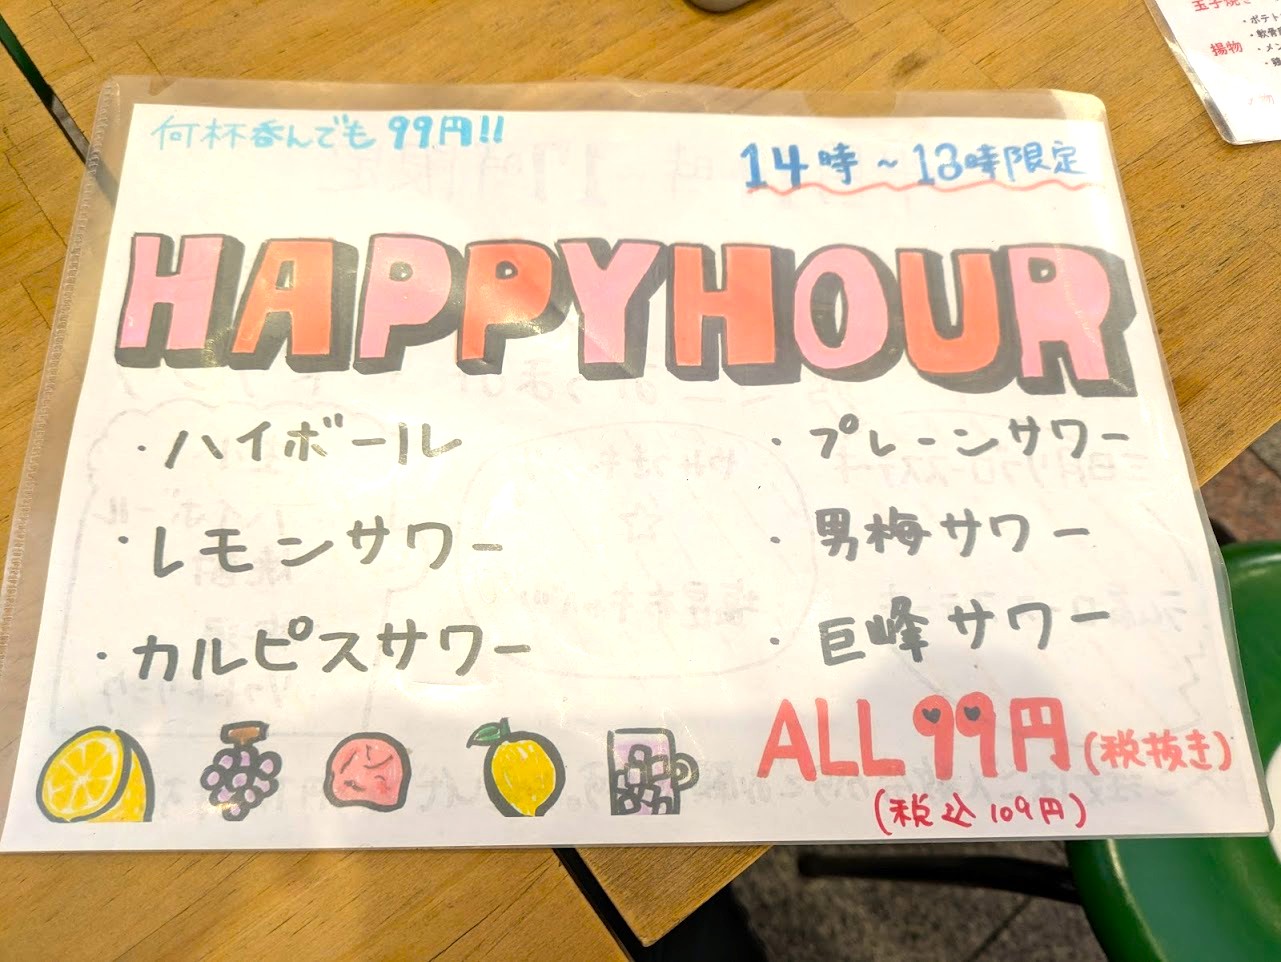 何杯呑んでも 99円!!
14時 ~ 18時限定
HAPPYHOUR
・ハイボール
・プレーンサワー
・レモンサワー
・男梅サワー
・カルピスサワー
・巨峰サワー
ALL 99円(税抜き)
(税込109円)
揚物